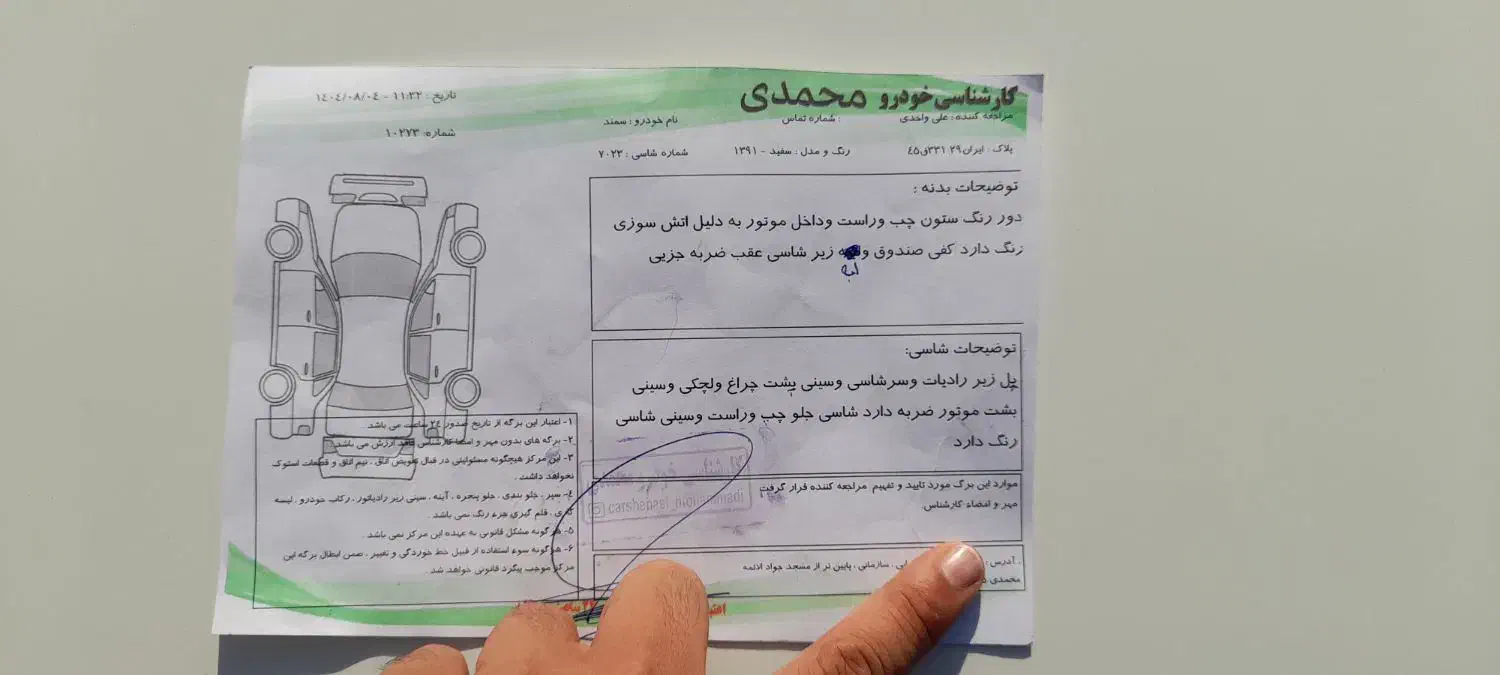 کارشناسی خودرو محمدی
تاریخ : ١١:٣٢ - ١٤٠٤/٠٨/٠٤
مراجعه کننده : علی واحدی
شماره تماس :
نام خودرو : سمند
شماره: ١٠٢٧٣
پلاک : ایران٢٩ ٣٣١ق٤٥
رنگ و مدل : سفید - ١٣٩١
شماره شاسی : ٧٠٢٣
توضیحات بدنه :
دور رنگ ستون چب وراست وداخل موتور به دلیل اتش سوزی
رنگ دارد کفی صندوق و زیر شاسی عقب ضربه جزیی
توضیحات شاسی:
پل زیر رادیات وسرشاسی وسینی پشت چراغ ولچکی وسینی
پشت موتور ضربه دارد شاسی جلو چپ وراست وسینی شاسی
رنگ دارد
موارد این برگ مورد تایید و تفهیم مراجعه کننده قرار گرفت
مهر و امضاء کارشناس:
کارشناسی خودرو
carshenasi_mohammadi
آدرس :
سازمانی ، پایین تر از مسجد جواد الائمه
محمدی
١- اعتبار این برگه از تاریخ صدور ٢٤ ساعت می باشد.
٢- برگه های بدون مهر و امضا کارشناس فاقد ارزش می باشد.
٣- این مرکز هیچگونه مسئولیتی در قبال تعویض اتاق ، نیم اتاق و قطعات استوک
نخواهد داشت .
٤- سپر ، جلو بندی ، جلو پنجره ، آینه ، سینی زیر رادیاتور ، رکاب خودرو ، لیسه
گیری ، قلم گیری جزء رنگ نمی باشد .
٥- هرگونه مشکل قانونی به عهده این مرکز نمی باشد .
٦- هرگونه سوء استفاده از قبیل خط خوردگی و تغییر ، ضمن ابطال برگه این
مرکز موجب پیگرد قانونی خواهد شد .